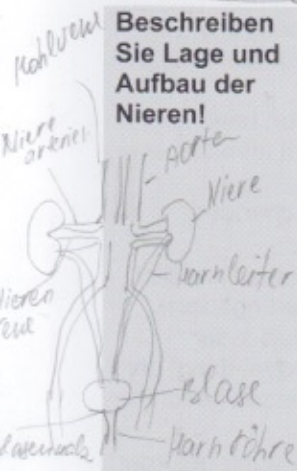 Beschreiben
Sie Lage und
Aufbau der
Nieren!
Hohlvene
Niere
Aorten
Niere
Harnleiter
Nieren
Blase
Harnröhre